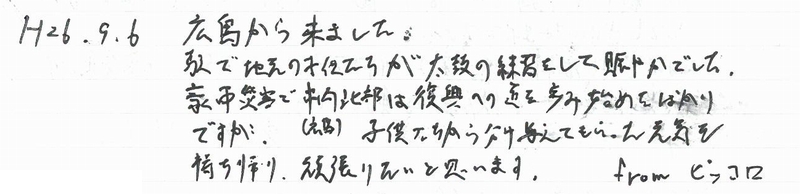 H26.9.6 広島から来ました。
駅で地元の子供たちが太鼓の練習をして賑やかでした。
豪雨災害で市内北部は復興への道を歩み始めたばかり
ですが、(広島) 子供たちから分け与えてもらった元気を
持ち帰り、頑張りたいと思います。 from ピッコロ